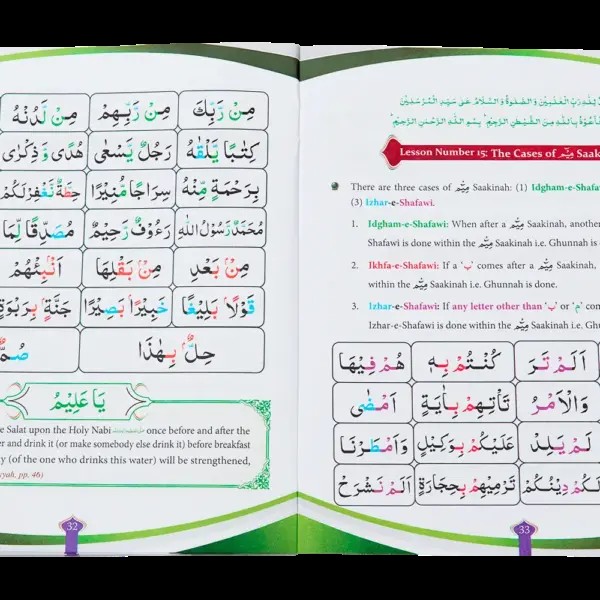 مِنْ رَّبِّكَ مِنْ رَّبِّهِمْ مِنْ لَّدُنْهُ
كِتٰبًا يَّلْقٰىهُ رَجُلٌ يَّسْعٰى هُدًى وَّ ذِكْرٰى
بِرَحْمَةٍ مِّنْهُ سِرَاجًا مُّنِيْرًا حِطَّةٌ نَّغْفِرْ لَكُمْ
مُحَمَّدٌ رَّسُوْلُ اللهِ رَءُوْفٌ رَّحِيْمٌ مُصَدِّقًا لِّمَا
مِنْۢ بَعْدِ مِنْۢ بَقْلِهَا اَنْۢبِئْهُمْ
قَوْلًاۢ بَلِيْغًا خَبِيْرًاۢ بَصِيْرًا جَنَّةٍۢ بِرَبْوَةٍ
حِلٌّۢ بِهٰذَا صُمٌّۢ
يَا عَلِيْمُ
Salat upon the Holy Nabi once before and after the
er and drink it (or make somebody else drink it) before breakfast
y (of the one who drinks this water) will be strengthened,
pp. 46)
32
Lesson Number 15: The Cases of مِيْم Saak
There are three cases of مِيْم Saakinah: (1) Idgham-e-Shafa
(3) Izhar-e-Shafawi.
1. Idgham-e-Shafawi: When after a مِيْم Saakinah, another
Shafawi is done within the مِيْم Saakinah i.e. Ghunnah is
2. Ikhfa-e-Shafawi: If a ‘ب’ comes after a مِيْم Saakinah,
within the مِيْم Saakinah i.e. Ghunnah is done.
3. Izhar-e-Shafawi: If any letter other than ‘ب’ or ‘م’ com
Izhar-e-Shafawi is done within the مِيْم Saakinah i.e. Ghu
اَلَمْ تَرَ كُنْتُمْ بِهٖ هُمْ فِيْهَا
وَالْاَمْرُ تَاْتِهِمْ بِاٰيَةٍ اَمْضٰى
لَمْ يَلِدْ عَلَيْكُمْ بِوَكِيْلٍ وَاَمْطَرْنَا
لَكُمْ دِيْنُكُمْ تَرْمِيْهِمْ بِحِجَارَةٍ اَلَمْ نَشْرَحْ
33